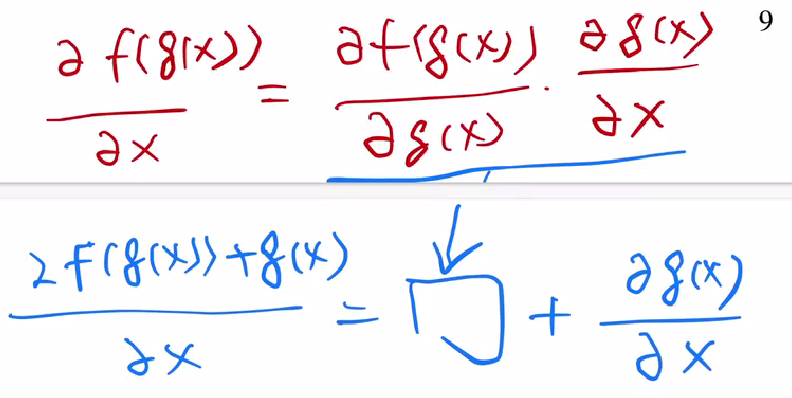 9
∂f(g(x))/∂x = ∂f(g(x))/∂g(x) · ∂g(x)/∂x
∂f(g(x))+g(x)/∂x = □ + ∂g(x)/∂x